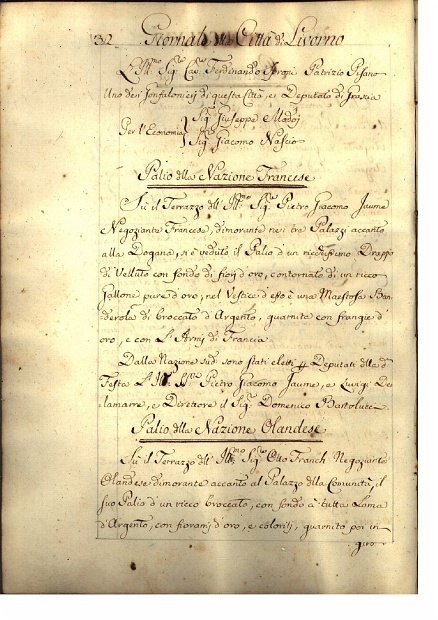 32 Giornale di Città di Livorno
L'Ill.mo Sig.r Cav. Ferdinando Patrizio Pisano
Uno dei Gonfalonieri di questa Città, e Deputato di Grascia
Per l'Economia } Sig.r Giuseppe
Sig.r Giacomo
Palio della Nazione Francese
Sù il Terrazzo dell' Ill.mo Sig.r Pietro Giacomo Jaume
Negoziante Francese, dimorante nei tre Palazzi accanto
alla Dogana, si è veduto il Palio d'un ricchissimo Drappo
di Vellato con fondo di fiori d'oro, contornato di un ricco
Gallone pure d'oro, nel Vertice d'esso è una Maestosa Ban-
derola di broccato d'Argento, guarnita con frangie d'
oro, e con L'Armi di Francia.
Dalla Nazione sud.a sono stati eletti p Deputati della d.a
Festa L' Ill. Sig.ri Pietro Giacomo Jaume, e Luigi De
lamarre, e Direttore il Sig.r Domenico
Palio della Nazione Olandese
Sù il Terrazzo dell' Ill.mo Sig.r Otto Franch Negoziante
Olandese dimorante accanto al Palazzo della Comunità, il
suo Palio d'un ricco broccato, con fondo à tutta Lama
d'Argento, con fiorami d'oro, e coloriti, guarnito poi in
giro